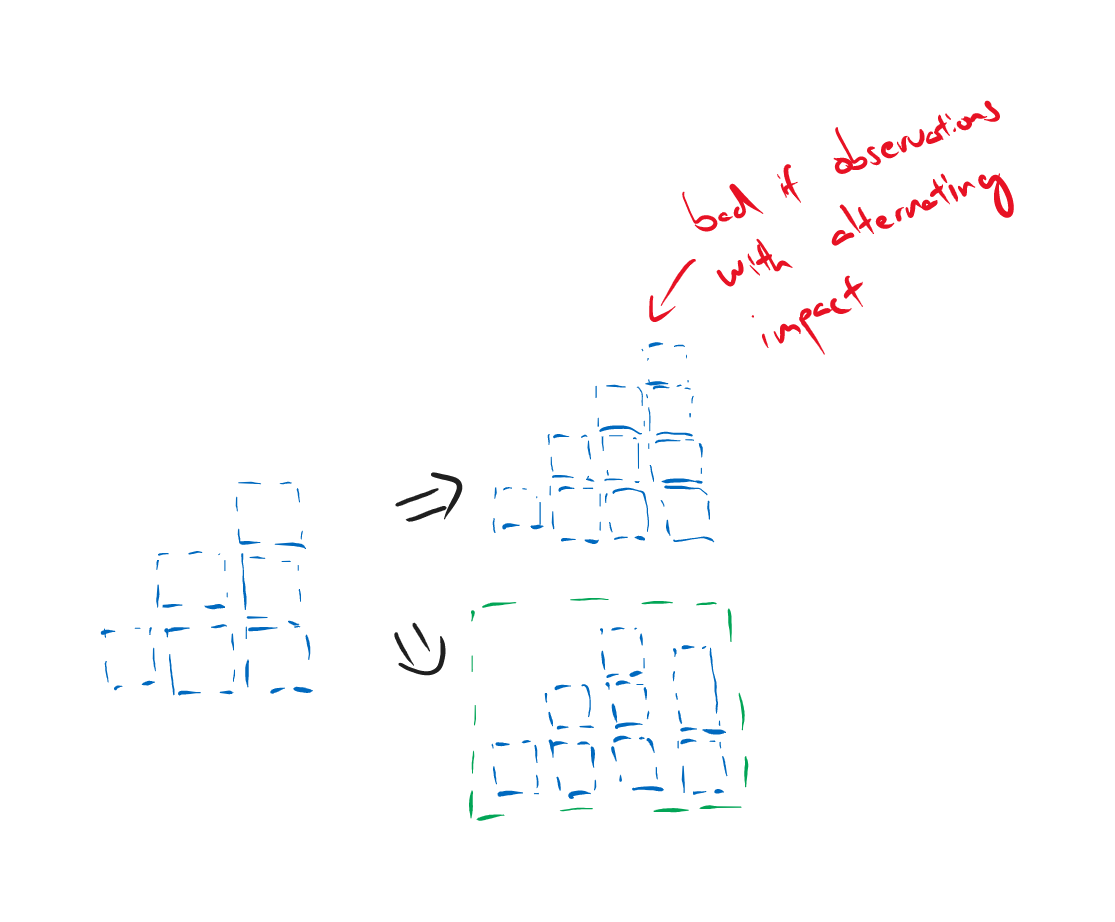 bad if observations
with alternating
impact